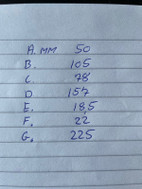 A. MM 50
B. 105
C. 78
D 157
E. 18,5
F. 22
G. 225